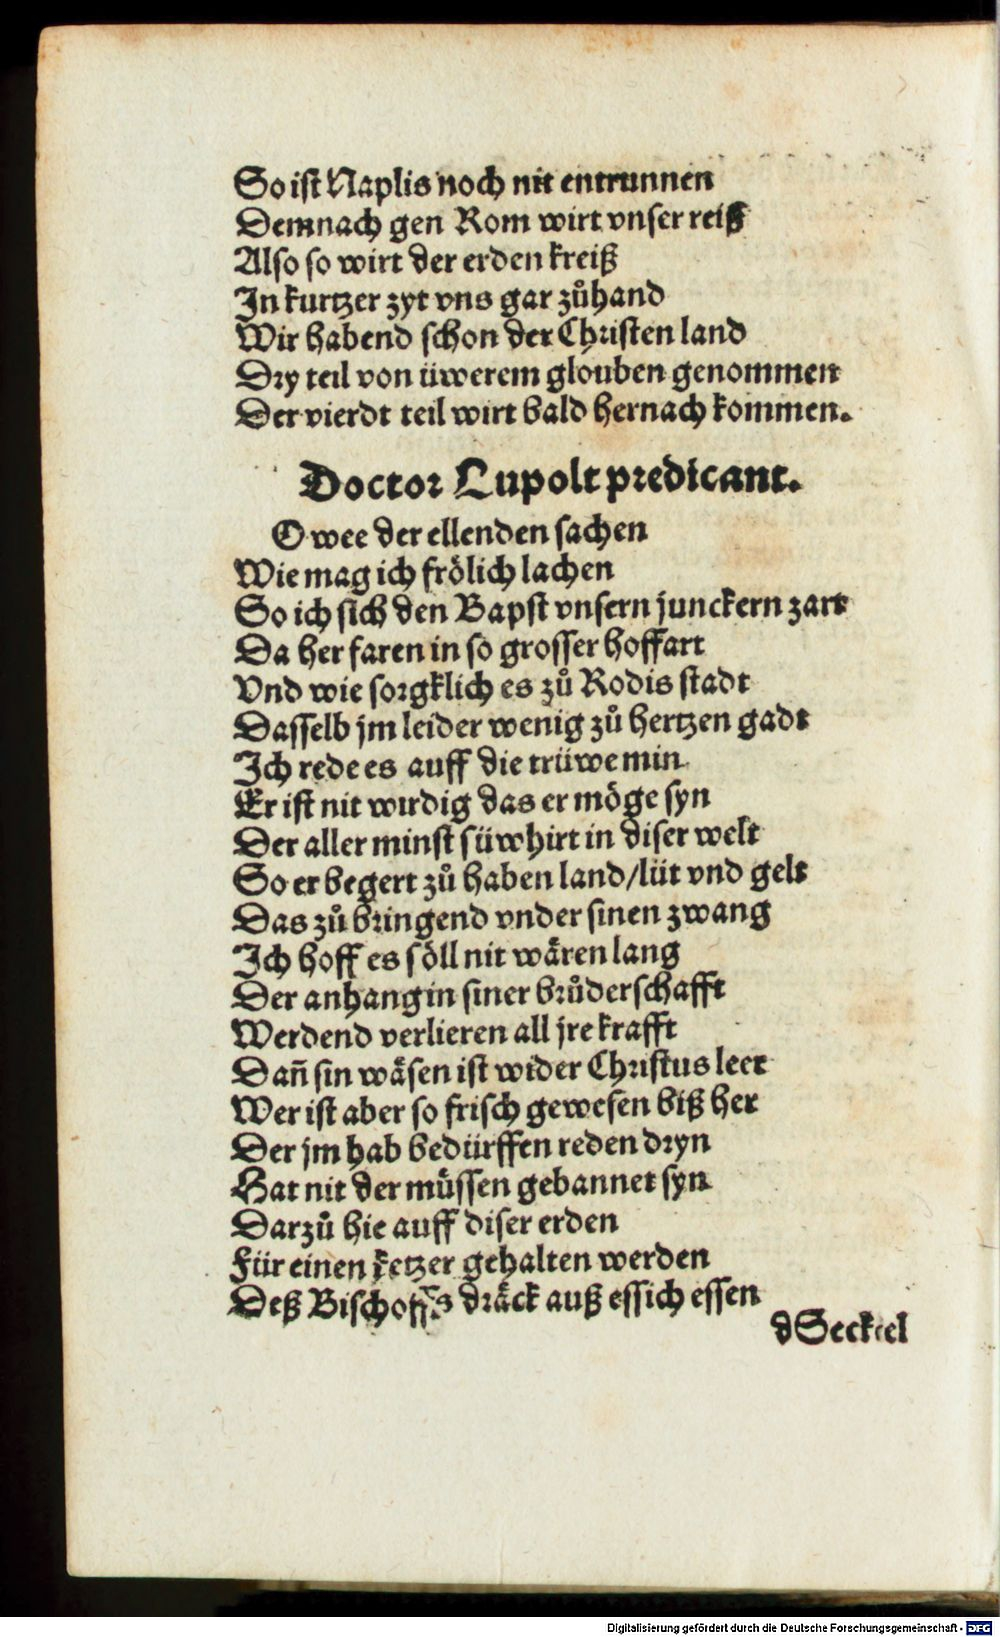 So ist Naplis noch nit entrunnen
Demnach gen Rom wirt vnser reiß
Also so wirt der erden kreiß
In kurtzer zyt vns gar zůhand
Wir habend schon der Christen land
Dry teil von üwerem glouben genommen
Der vierdt teil wirt bald hernach kommen.
Doctor Lupolt predicant.
O wee der ellenden sachen
Wie mag ich frölich lachen
So ich sich den Bapst vnsern junckern zart
Da her faren in so grosser hoffart
Vnd wie sorgklich es zů Rodis stadt
Dasselb jm leider wenig zů hertzen gadt
Ich rede es auff die trüwe min
Er ist nit wirdig das er möge syn
Der aller minst süwhirt in diser welt
So er begert zů haben land/lüt vnd gelt
Das zů bringend vnder sinen zwang
Ich hoff es söll nit wären lang
Der anhang in siner brůderschafft
Werdend verlieren all jre krafft
Dañ sin wäsen ist wider Christus leer
Wer ist aber so frisch gewesen biß her
Der jm hab bedürffen reden dryn
Hat nit der müssen gebannet syn
Darzů hie auff diser erden
Für einen ketzer gehalten werden
Deß Bischoffs dräck auß essich essen
dSeckel
Digitalisierung gefördert durch die Deutsche Forschungsgemeinschaft - DFG